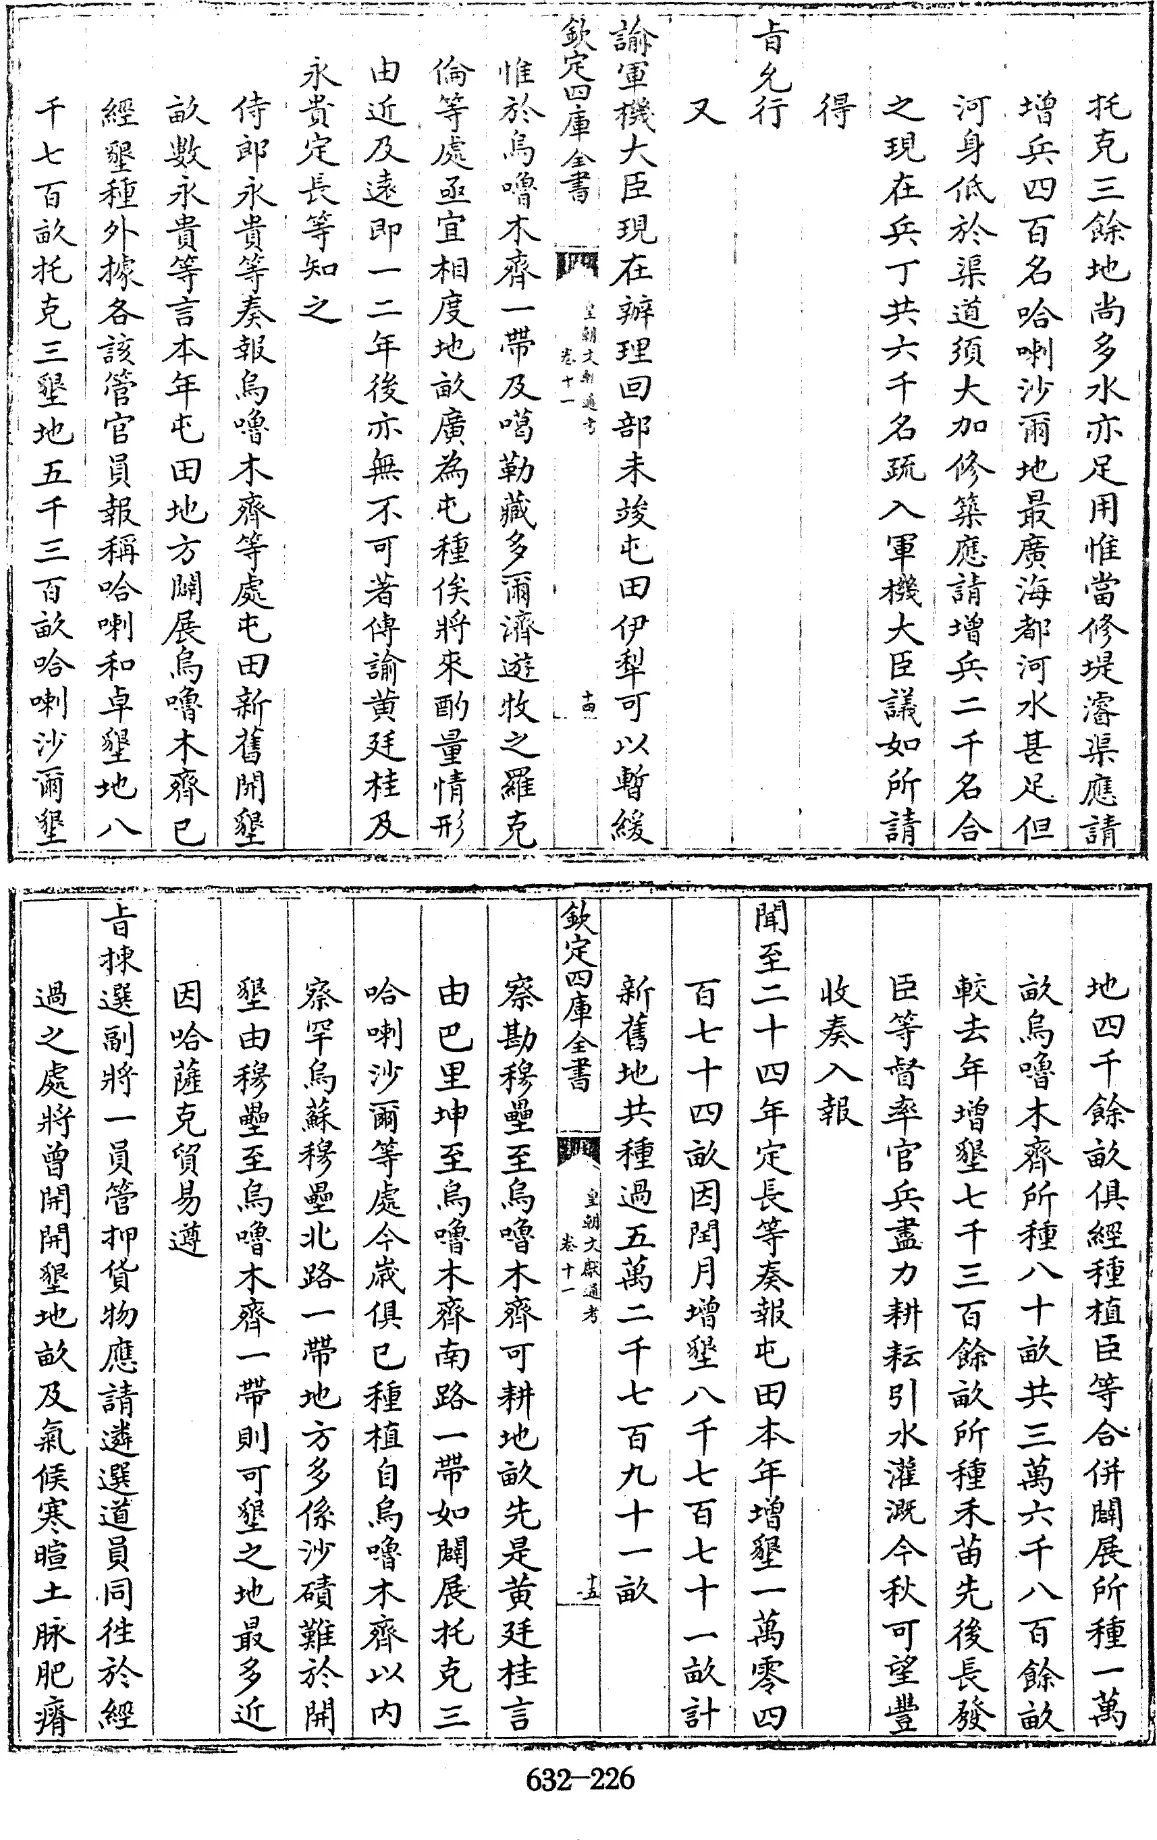 托克三餘地尚多水亦足用惟當修堤濬渠應請
增兵四百名哈喇沙爾地最廣海都河水甚足但
河身低於渠道須大加修築應請增兵二千名合
之現在兵丁共六千名疏入軍機大臣議如所請
得
旨允行
又
諭軍機大臣現在辦理回部未竣屯田伊犁可以暫緩
欽定四庫全書
皇朝文獻通考
卷十一
十四
惟於烏嚕木齊一帶及噶勒藏多爾濟遊牧之羅克
倫等處亟宜相度地畝廣為屯種俟將來酌量情形
由近及遠即一二年後亦無不可著傳諭黄廷桂及
永貴定長等知之
侍郎永貴等奏報烏嚕木齊等處屯田新舊開墾
畝數永貴等言本年屯田地方闢展烏嚕木齊已
經墾種外據各該管官員報稱哈喇和卓墾地八
千七百畝托克三墾地五千三百畝哈喇沙爾墾
地四千餘畝俱經種植臣等合併闢展所種一萬
畝烏嚕木齊所種八十畝共三萬六千八百餘畝
較去年增墾七千三百餘畝所種禾苗先後長發
臣等督率官兵盡力耕耘引水灌溉今秋可望豐
收奏入報
聞至二十四年定長等奏報屯田本年增墾一萬零四
百七十四畝因閏月增墾八千七百七十一畝計
新舊地共種過五萬二千七百九十一畝
欽定四庫全書
皇朝文獻通考
卷十一
十五
察勘穆壘至烏嚕木齊可耕地畝先是黄廷桂言
由巴里坤至烏嚕木齊南路一帶如闢展托克三
哈喇沙爾等處今歲俱已種植自烏嚕木齊以内
察罕烏蘇穆壘北路一帶地方多係沙磧難於開
墾由穆壘至烏嚕木齊一帶則可墾之地最多近
因哈薩克貿易遵
旨揀選副將一員管押貨物應請遴選道員同徃於經
過之處將曾開開墾地畝及氣候寒暄土脉肥瘠
632-226